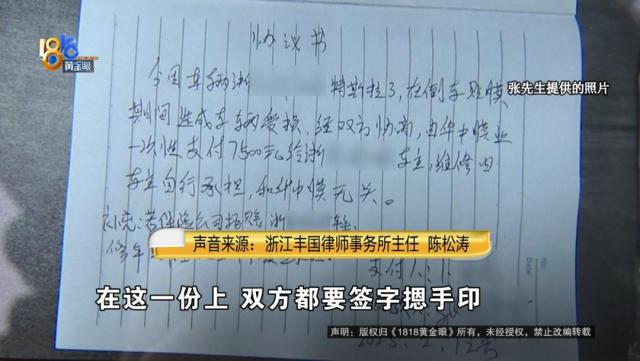 1818
黄金眼
协议书
今因车辆浙 特斯拉3,在倒车贴膜
期间造成车辆受损,经双方协商,由 膜业
一次性支付7500元给浙 车主,维修由
车主自行承担,和 膜无关。
张先生提供的照片
补充:若保险公司拒赔 浙
声音来源:浙江丰国律师事务所主任 陈松涛
支付人:
在这一份上 双方都要签字摁手印
声明:版权归《1818黄金眼》所有,未经授权,禁止改编转载